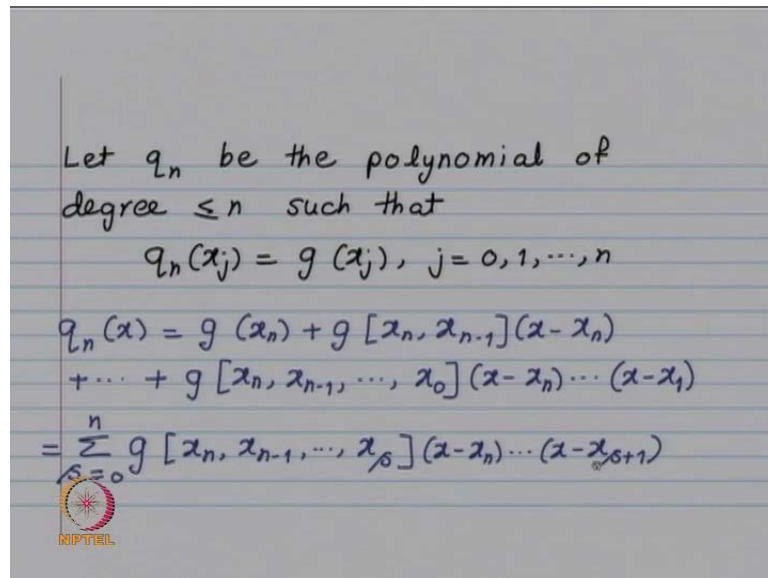 Let qₙ be the polynomial of
degree ≤ n such that
qₙ(xⱼ) = g(xⱼ), j = 0, 1, ⋯, n
qₙ(x) = g(xₙ) + g[xₙ, xₙ₋₁](x - xₙ)
+ ⋯ + g[xₙ, xₙ₋₁, ⋯, x₀](x - xₙ) ⋯ (x - x₁)
= ∑ₛ₌₀ⁿ g[xₙ, xₙ₋₁, ⋯, xₛ](x - xₙ) ⋯ (x - xₛ₊₁)
NPTEL